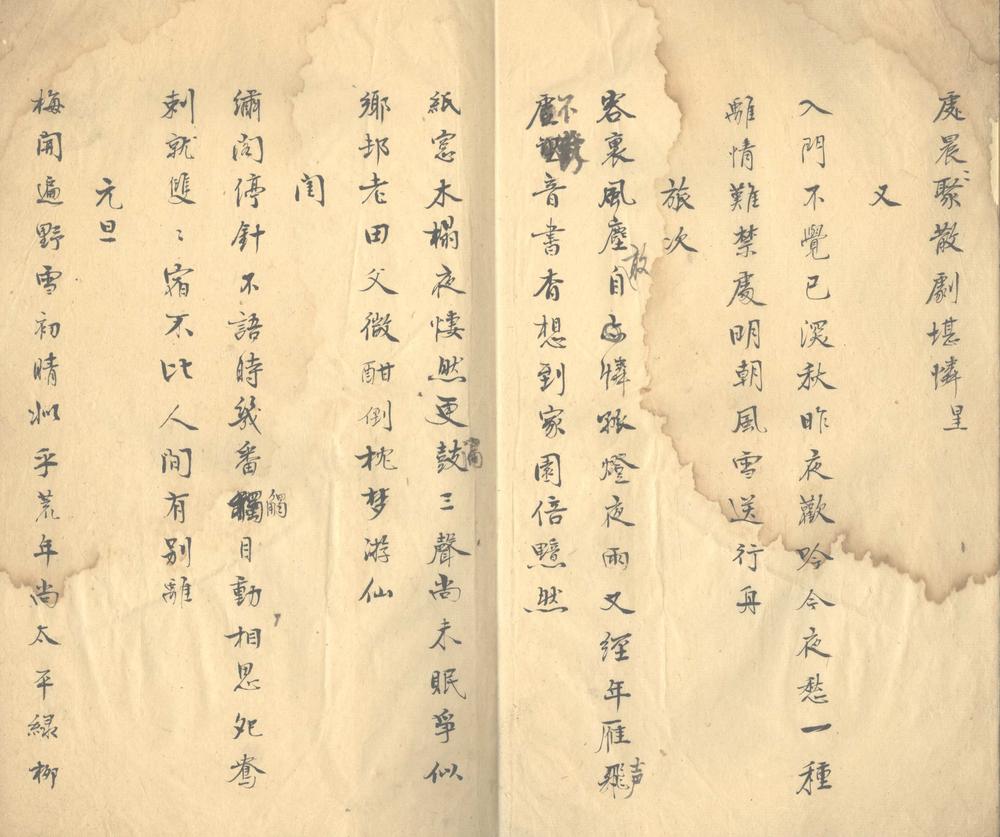 處晨〻聚散劇堪憐星
又
入門不覺已深秋昨夜歡吟今夜愁一種
離情難禁處明朝風雪送行舟
旅次
客裏風塵自憐孤燈夜雨又經年雁飛声
不音書杳想到家園倍黯然
紙窓木榻夜悽然更鼓三聲尚未眠爭似
鄉邨老田父微酣倒枕梦游仙
閨
繡閣停針不語時幾番觸目動相思死鴦
刺就雙〻宿不比人間有别離
元旦
梅開遍野雪初晴似乎荒年尚太平綠柳